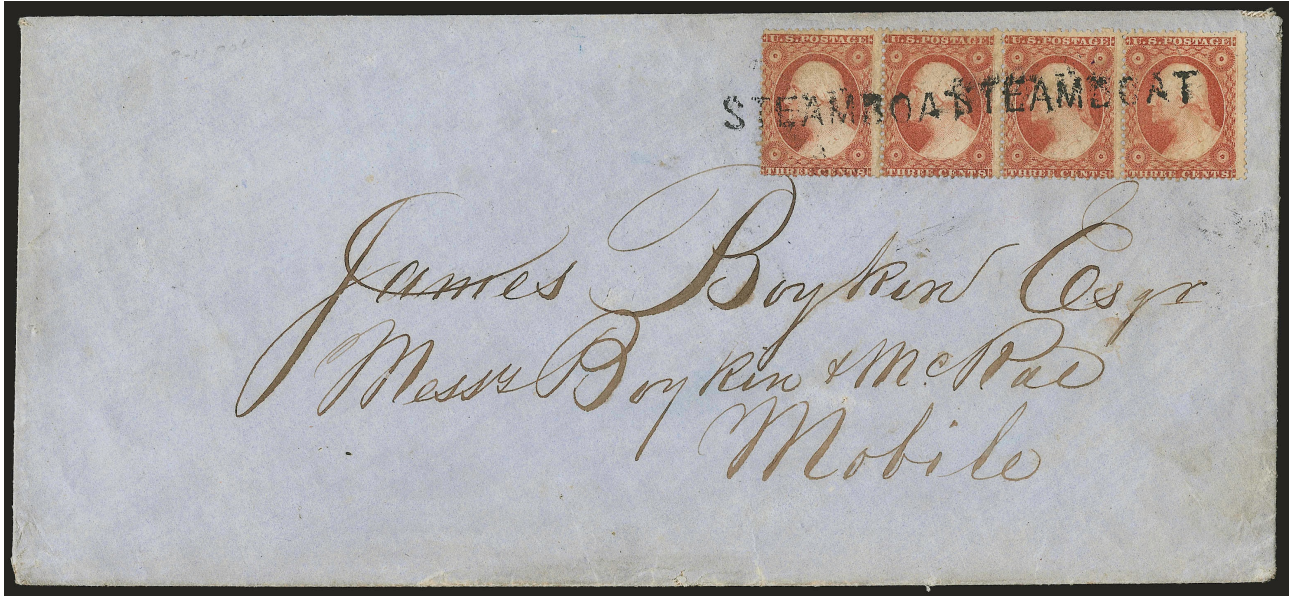 U.S. POSTAGE U.S. POSTAGE U.S. POSTAGE U.S. POSTAGE
STEAMBOAT STEAMBOAT
THREE CENTS THREE CENTS THREE CENTS THREE CENTS
James Boykin Esqr
Messrs Boykin & McRae
Mobile